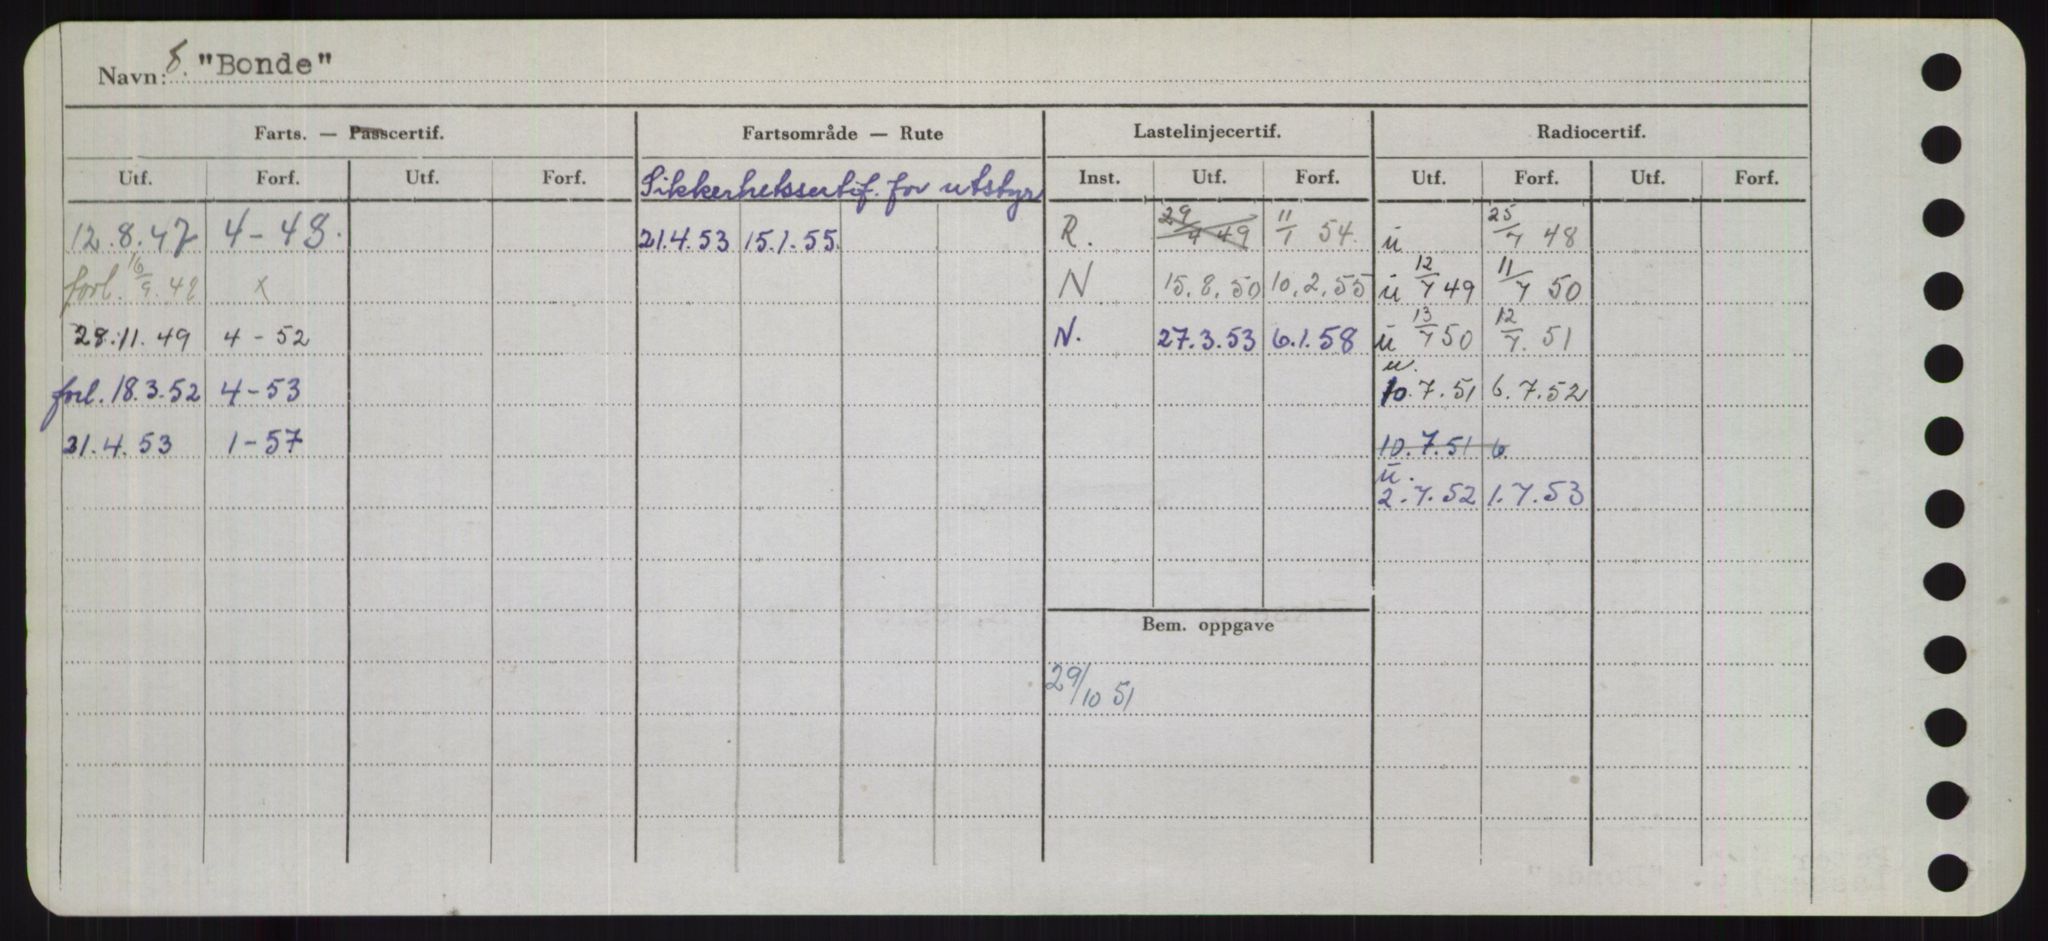 Navn: S. "Bonde"
Farts. — Passcertif. Fartsområde — Rute Lastelinjecertif. Radiocertif.
Utf. Forf. Utf. Forf. Sikkerhetssertif. for utstyr Inst. Utf. Forf. Utf. Forf. Utf. Forf.
12.8.47 4-48. 21.4.53 15.1.55. R. 29/4 49 11/1 54. ü 25/7 48
forl. 16/9.48 x N 15.8.50 10.2.55 ü 12/7 49 11/7 50
28.11.49 4-52 N. 27.3.53 6.1.58 ü 13/7 50 12/7. 51
u.
forl. 18.3.52 4-53 10.7.51 6.7.52
21.4.53 1-57 10.7.51 6
ü.
2.7.52 1.7.53
Bem. oppgave
29/10 51